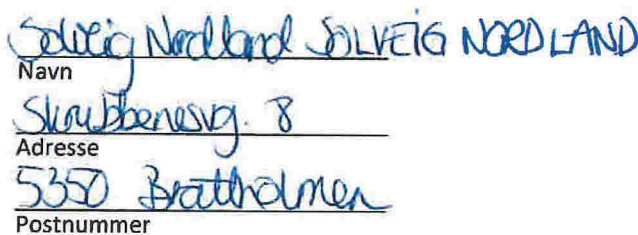 Solveig Nordland SOLVEIG NORDLAND
Navn
Skrubbenesvg. 8
Adresse
5350 Brattholmen
Postnummer